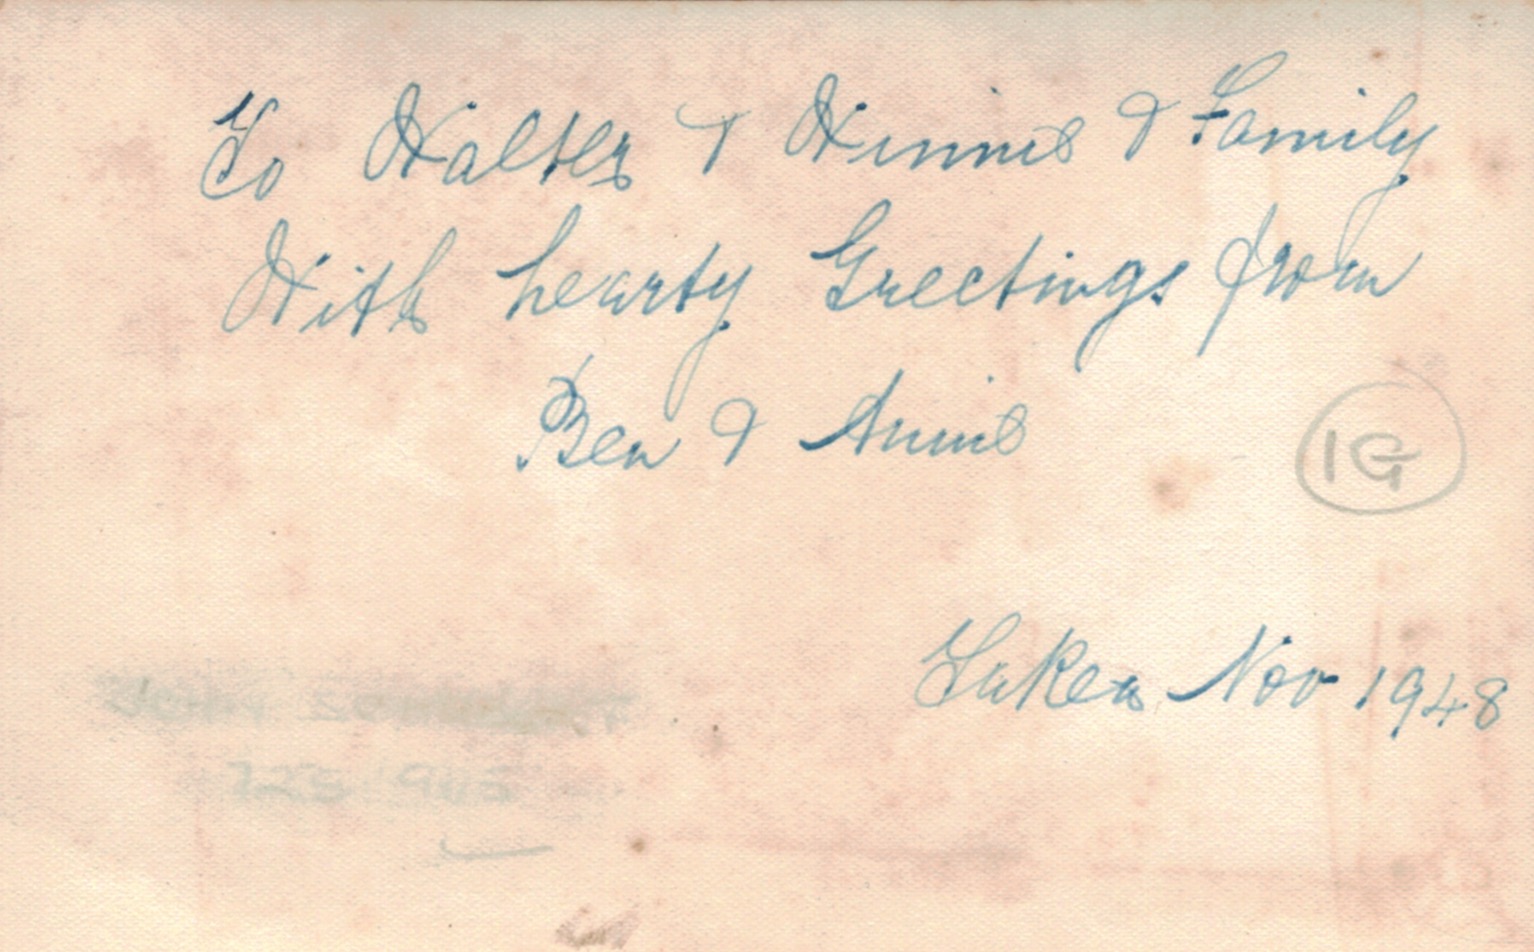 To Walter & Winnie & Family
With hearty Greetings from
Ben & Annie
IG
Taken Nov 1948